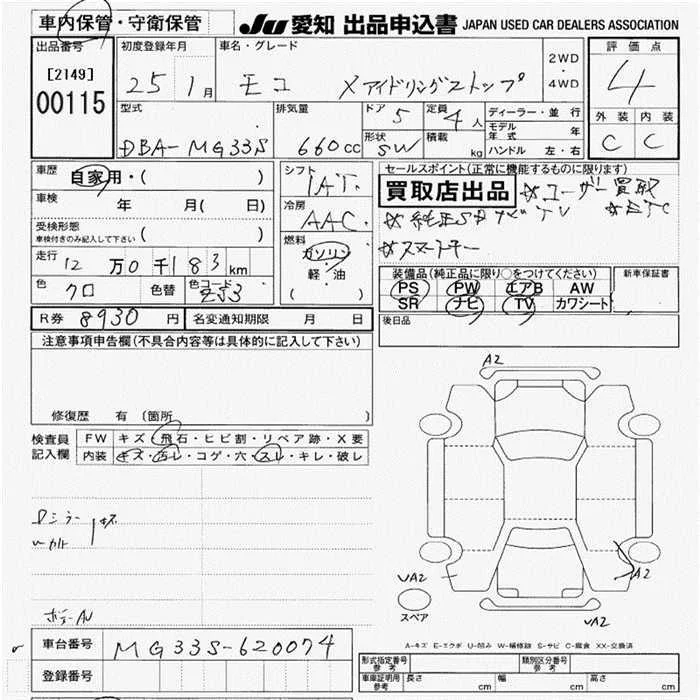 車内保管・守衛保管
JU 愛知 出品申込書 JAPAN USED CAR DEALERS ASSOCIATION
出品番号 初度登録年月 車名・グレード 評価点
[2149] 2WD
00115 25 1月 モコ X アイドリングストップ ・ 4
4WD
型式 排気量 ドア 5 定員 4人 ディーラー・並行 外装 内装
モデル年式 年
DBA-MG33S 660cc 形状 SW 積載 kg ハンドル 左・右 C C
車歴 自家用・( ) シフト IAT セールスポイント(正常に機能するものに限ります)
車検 年 月( 日) 冷房 AAC 買取店出品 ※ユーザー買取
※純正SDナビTV ※ETC
受検形態 ( )
車検付きのみ記入して下さい
燃料 ※スマートキー
走行 12万0千183km ガソリン 装備品(純正品に限り○をつけてください) 新車保証書
軽・油 PS PW エアB AW
色 クロ 色替 色コード ZJ3 ( ) SR ナビ TV カワシート
R券 8930円 名変通知期限 月 日 後日品
注意事項申告欄(不具合内容等は具体的に記入して下さい)
A2
修復歴 有(箇所 )
検査員 FW キズ・飛石・ヒビ割・リペア跡・X要
記入欄 内装 キズ・汚レ・コゲ・穴・スレ・キレ・破レ
Dミラー キズ
VA2 A2
スペア VA2
A-キズ E-エクボ U-凹み W-補修跡 S-サビ C-腐食 XX-交換済
車台番号 MG33S-620074
登録番号
形式指定番号 参考 類別区分番号 参考
車庫証明用 参考 長さ cm 幅 cm 高さ cm